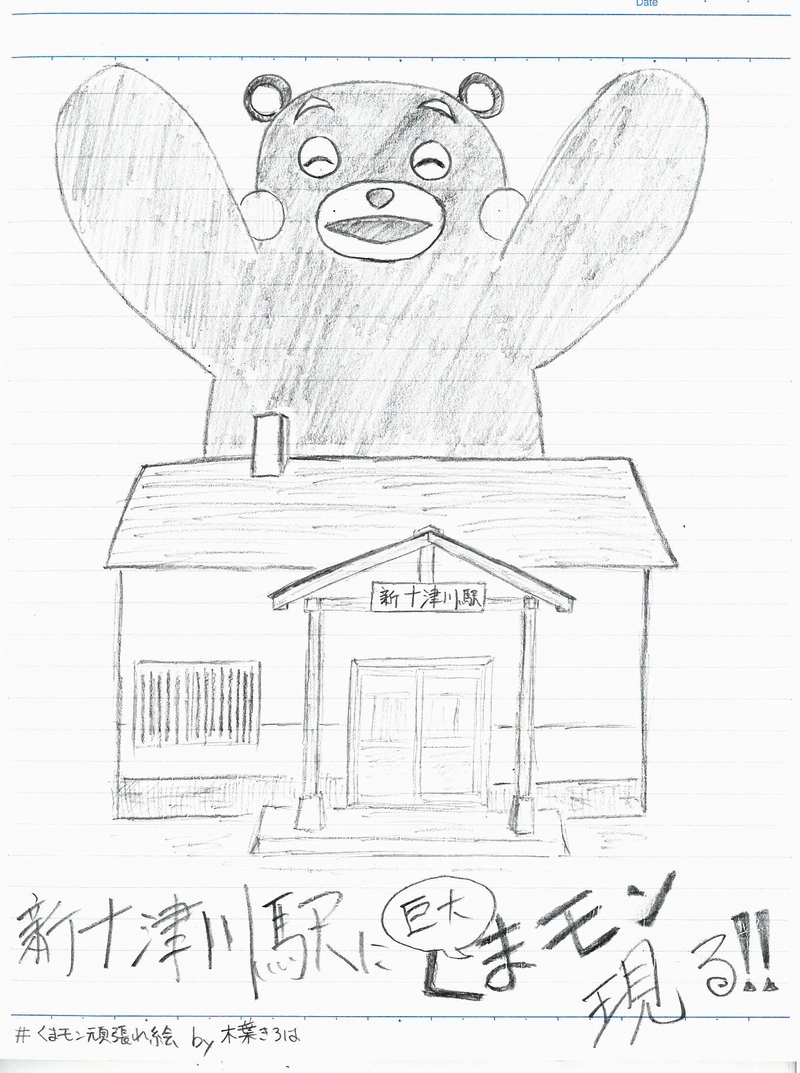 Date
新十津川駅
新十津川駅に巨大くまモン
現る!!
#くまモン頑張れ絵 by 木葉きろは